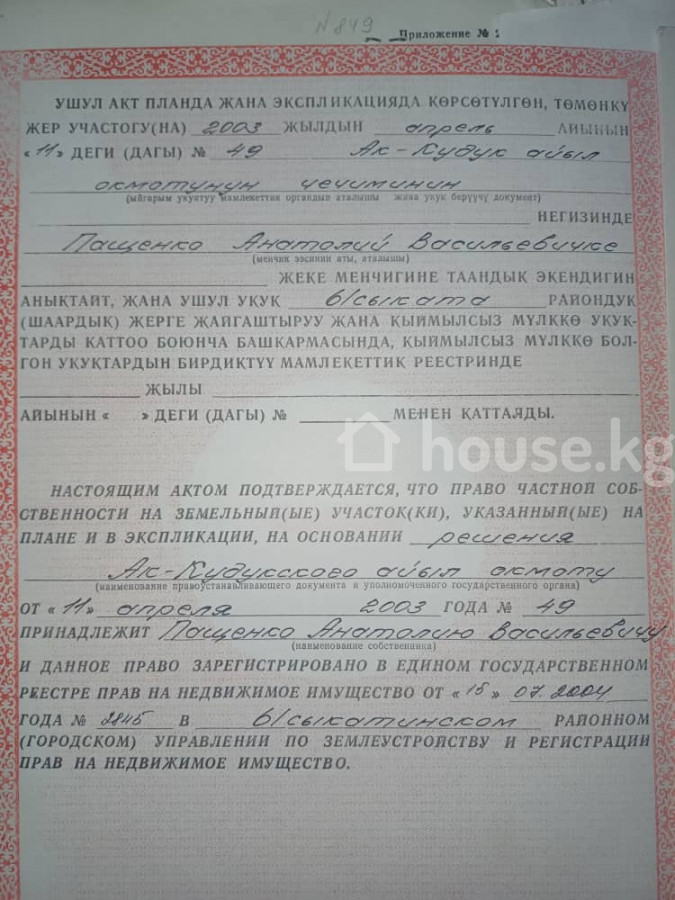 N 849
Приложение № :
УШУЛ АКТ ПЛАНДА ЖАНА ЭКСПЛИКАЦИЯДА КӨРСӨТҮЛГӨН, ТӨМӨНКҮ
ЖЕР УЧАСТОГУ(НА) 2003 ЖЫЛДЫН апрель АЙЫНЫН
«11» ДЕГИ (ДАГЫ) № 49 Ак-Кудук айыл
окмотунун чечиминин
(ыйгарым укуктуу мамлекеттик органдын аталышы жана укук берүүчү документ)
НЕГИЗИНДЕ
Пащенко Анатолий Васильевичке
(менчик ээсинин аты, аталышы)
ЖЕКЕ МЕНЧИГИНЕ ТААНДЫК ЭКЕНДИГИН
АНЫКТАЙТ, ЖАНА УШУЛ УКУК Ы/сыката РАЙОНДУК
(ШААРДЫК) ЖЕРГЕ ЖАЙГАШТЫРУУ ЖАНА КЫЙМЫЛСЫЗ МҮЛККӨ УКУК-
ТАРДЫ КАТТОО БОЮНЧА БАШКАРМАСЫНДА, КЫЙМЫЛСЫЗ МҮЛККӨ БОЛ-
ГОН УКУКТАРДЫН БИРДИКТҮҮ МАМЛЕКЕТТИК РЕЕСТРИНДЕ
ЖЫЛЫ
АЙЫНЫН « » ДЕГИ (ДАГЫ) № МЕНЕН КАТТАЛДЫ.
house.kg
НАСТОЯЩИМ АКТОМ ПОДТВЕРЖДАЕТСЯ, ЧТО ПРАВО ЧАСТНОЙ СОБ-
СТВЕННОСТИ НА ЗЕМЕЛЬНЫЙ(ЫЕ) УЧАСТОК(КИ), УКАЗАННЫЙ(ЫЕ) НА
ПЛАНЕ И В ЭКСПЛИКАЦИИ, НА ОСНОВАНИИ решения
Ак-Кудукского айыл окмоту
(наименование правоустанавливающего документа и уполномоченного государственного органа)
ОТ «11» апреля 2003 ГОДА № 49
ПРИНАДЛЕЖИТ Пащенко Анатолию Васильевичу
(наименование собственника)
И ДАННОЕ ПРАВО ЗАРЕГИСТРИРОВАНО В ЕДИНОМ ГОСУДАРСТВЕННОМ
РЕЕСТРЕ ПРАВ НА НЕДВИЖИМОЕ ИМУЩЕСТВО ОТ «15» 07.2004
ГОДА № 2845 В Ы/сыкатинском РАЙОННОМ
(ГОРОДСКОМ) УПРАВЛЕНИИ ПО ЗЕМЛЕУСТРОЙСТВУ И РЕГИСТРАЦИИ
ПРАВ НА НЕДВИЖИМОЕ ИМУЩЕСТВО.